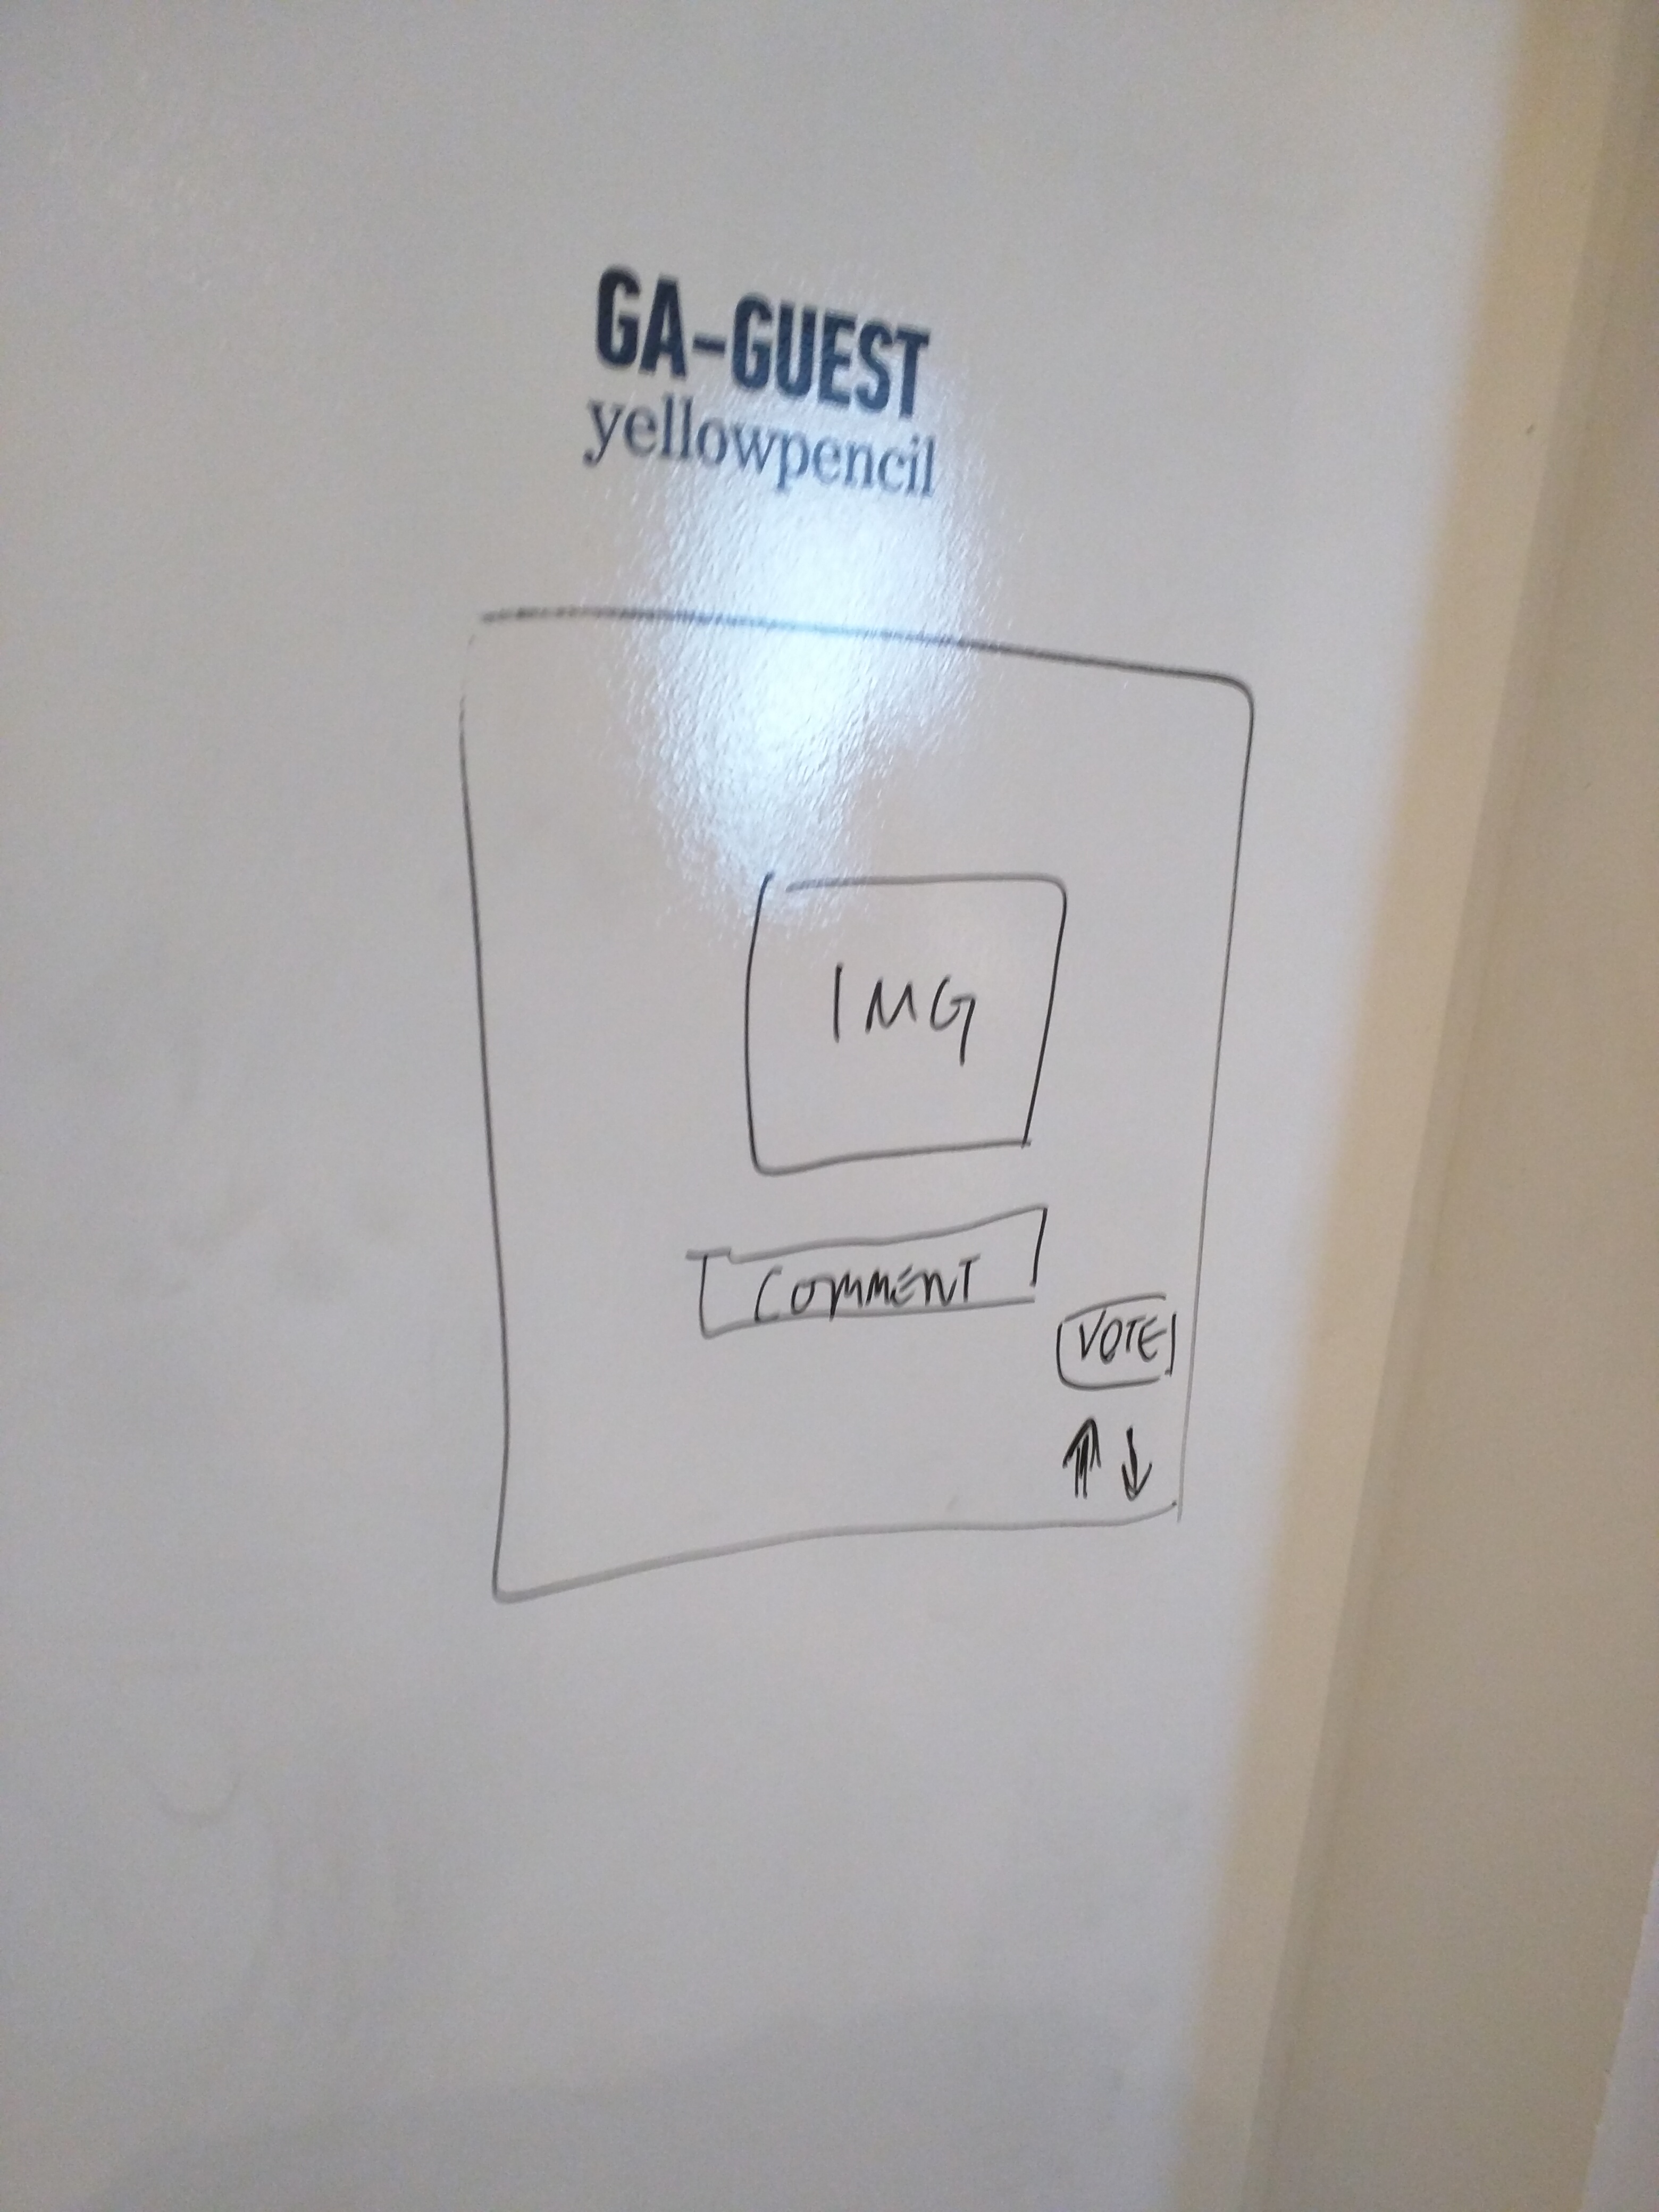 GA-GUEST
yellowpencil
IMG
COMMENT
VOTE
↑ ↓